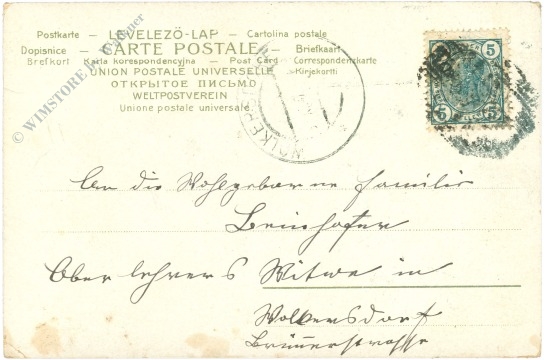 Postkarte – LEVELEZŐ-LAP – Cartolina postale
Dopisnice – CARTE POSTALE – Briefkaart
Brefkort – Karta korespondencyjna – Post Card – Correspondenzkarte
UNION POSTALE UNIVERSELLE – Kirjekortti
ОТКРЫТОЕ ПИСЬМО
WELTPOSTVEREIN
Unione postale universale
© WIMSTORE
5 5
5 5
WOLKER
An die Wohlgeborne Familie
Beinhofer
Oberlehrers Witwe in
Wolkersdorf
Brünnerstrasse